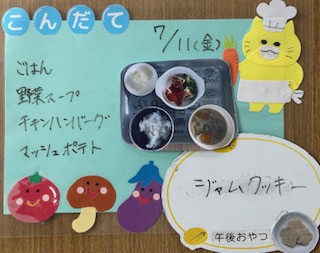 こんだて
7/11(金)
ごはん
野菜スープ
チキンハンバーグ
マッシュポテト
ジャムクッキー
午後おやつ